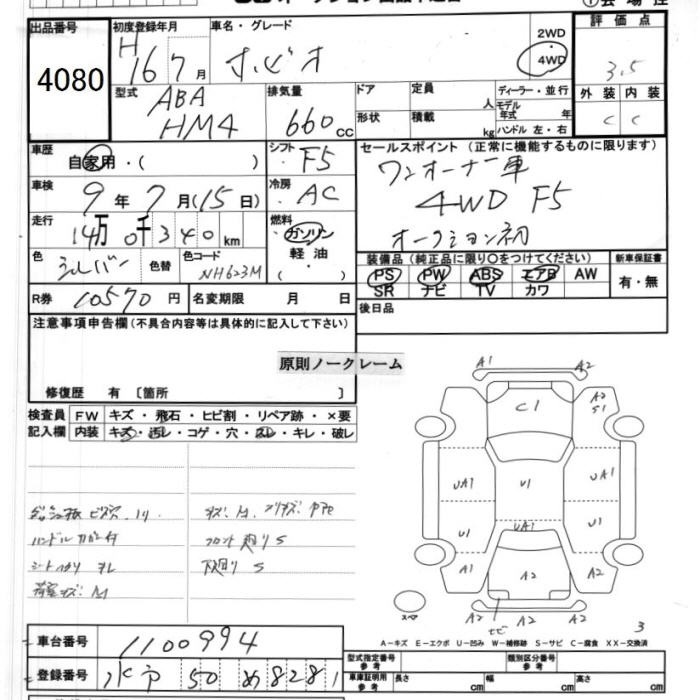 出品番号 4080
初度登録年月 H16 7月
車名・グレード ホビオ
2WD
4WD
評価点 3.5
外装 C 内装 C
型式 ABA HM4
排気量 660cc
ドア 形状
定員 人
積載 kg
ディーラー・並行
モデル年式 年
ハンドル 左・右
車歴 自家用・( )
シフト F5
車検 9年7月(15日)
冷房 AC
走行 14万0千340km
燃料 ガソリン・軽油・( )
色 シルバー 色替 色コード NH623M
R券 10570円 名変期限 月 日
セールスポイント(正常に機能するものに限ります)
ワンオーナー車
4WD F5
オークション初
装備品(純正品に限り○をつけてください) 新車保証書
PS PW ABS エアB AW 有・無
SR ナビ TV カワ
後日品
注意事項申告欄(不具合内容等は具体的に記入して下さい)
原則ノークレーム
修復歴 有 〔箇所 〕
検査員記入欄
FW キズ・飛石・ヒビ割・リペア跡・×要
内装 キズ・汚レ・コゲ・穴・スレ・キレ・破レ
フロント廻りS
下廻りS
A1 A2
C1
A2 S1
UA1 U1 UA1
U1 UA1 U1
A1 A2 A2
A2 A2
スペア
3
A-キズ E-エクボ U-凹み W-補修跡 S-サビ C-腐食 XX-交換済
車台番号 1100994
登録番号 水戸 50 め 8281
型式指定番号 参考
類別区分番号 参考
車庫証明用 参考
長さ cm 幅 cm 高さ cm